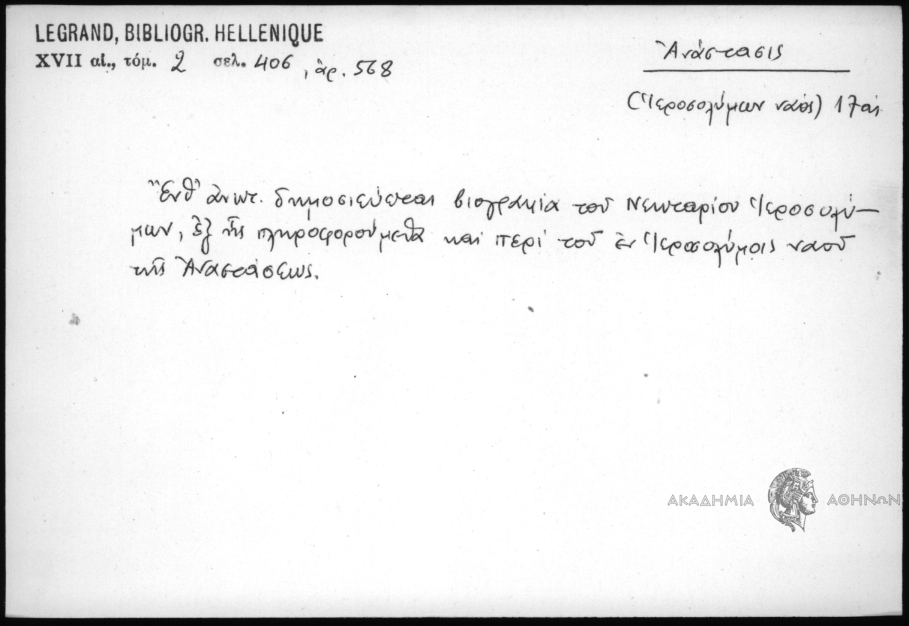 LEGRAND, BIBLIOGR. HELLENIQUE
XVII αἰ., τόμ. 2 σελ. 406, ἀρ. 568
Ἀνάστασις
(Ἱεροσολύμων ναός) 17 αἰ
Ἔνθ' ἀνωτ. δημοσιεύεται βιογραφία τοῦ Νεκταρίου Ἱεροσολύ-
μων, ἐξ ἧς πληροφορούμεθα καὶ περὶ τοῦ ἐν Ἱεροσολύμοις ναοῦ
τῆς Ἀναστάσεως.
ΑΚΑΔΗΜΙΑ ΑΘΗΝΩΝ